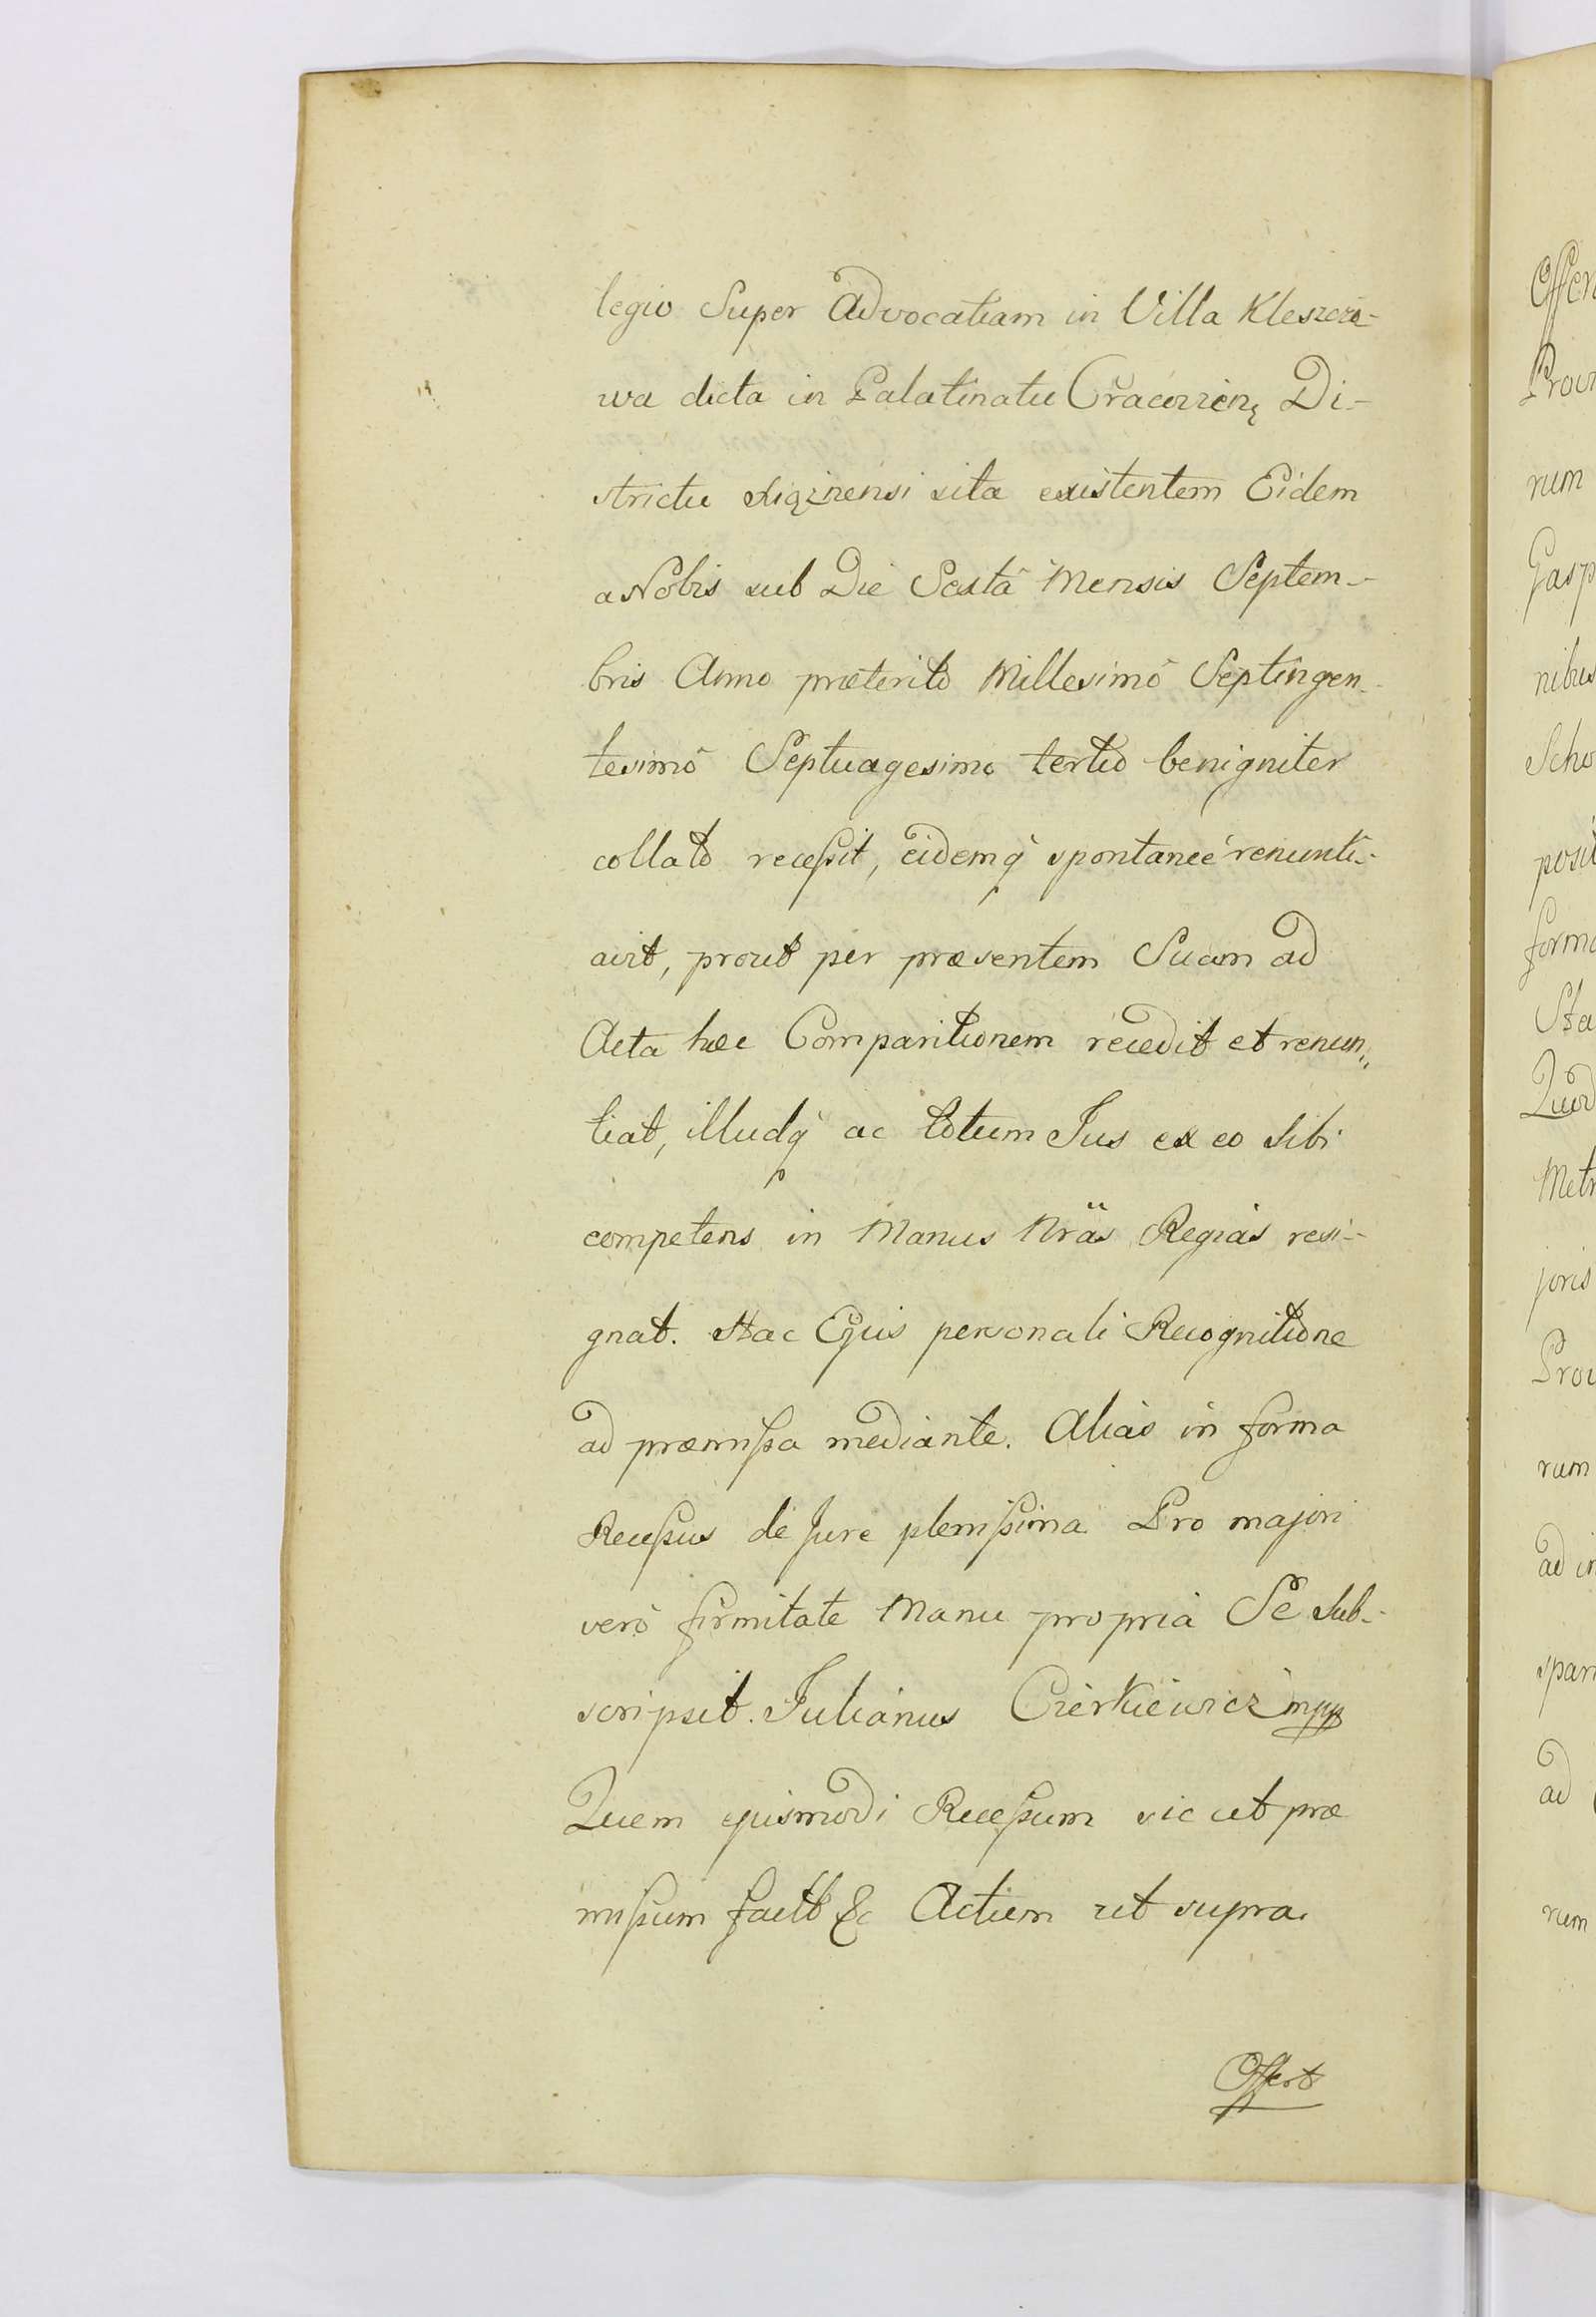 legio Super Advocatiam in Villa Kleszczo-
wa dicta in Palatinatu Cracovien̨ Di-
strictu Xiąznensi sita existentem Eidem
a Nobis sub Die Sextâ Mensis Septem-
bris Anno præterito Millesimô Septingen-
tesimô Septuagesimo tertio benigniter
collato recessit, eidemq̀ spontaneè renunti-
avit, prout per præsentem Suam ad
Acta hæc Comparitionem recedit et renun„
tiat, illudq̀ ac totum Jus ex eo Sibi
competens in Manus Nräs Regias resi-
gnat. Hac Ejus personali Recognitione
ad præmissa mediante. Alias in forma
Recessus de Jure plenissima. Pro majori
verò firmitate Manu propriâ Se Sub-
scripsit. Julianus Czerkiewicz mpp
Quem ejusmodi Recessum sic ut præ
missum factt &c Actum ut supra.
Offert
Offer
Prov
rum
Gasp
nibus
Scho
posit
forma
Sta
Quod
Metr
joris
Prov
rum
ad in
span
ad
rum